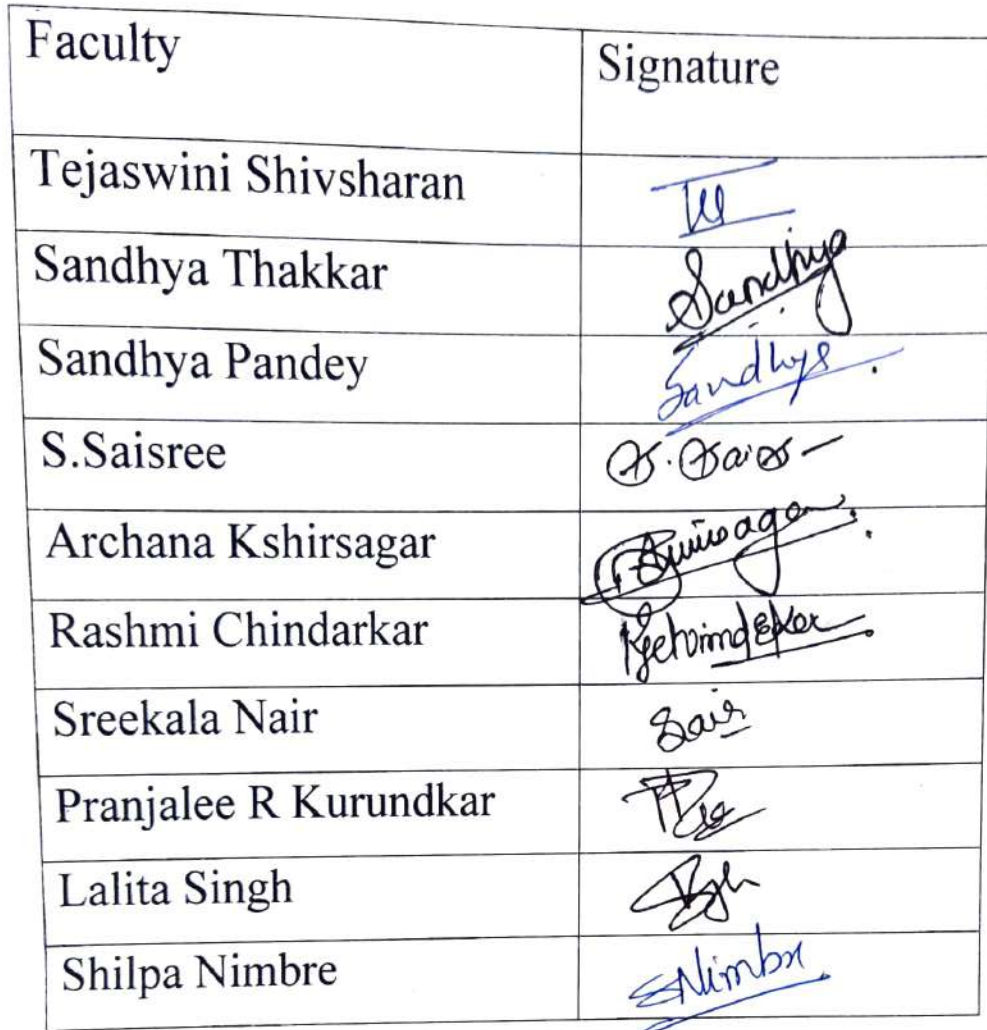 Faculty Signature
Tejaswini Shivsharan
Sandhya Thakkar Sandhya
Sandhya Pandey Sandhya
S.Saisree
Archana Kshirsagar
Rashmi Chindarkar
Sreekala Nair
Pranjalee R Kurundkar
Lalita Singh
Shilpa Nimbre SNimbre